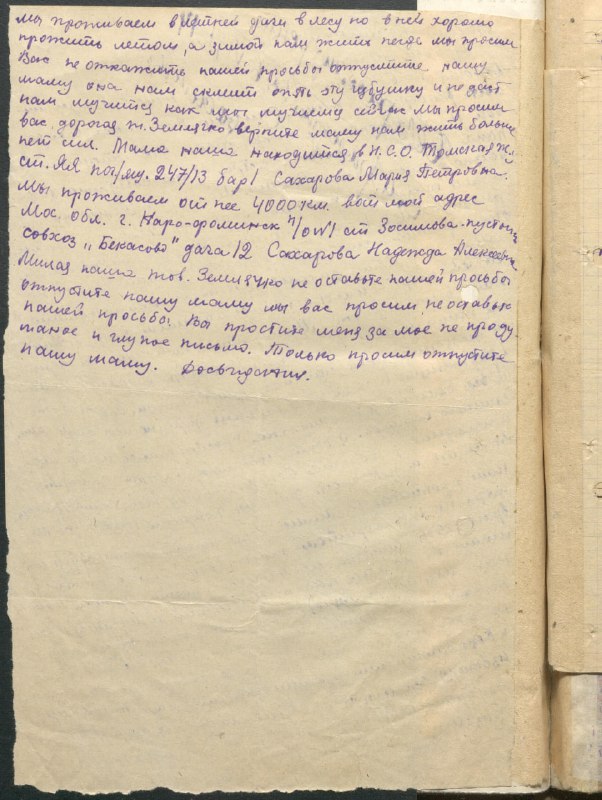 мы проживаем в летней дачи в лесу но в ней хорошо
прожить летом, а зимой нам жить негде мы просим
Вас не откажите нашей просьбы отпустите нашу
маму она нам снимит опять эту избушку и не даст
нам мучится как мы мучимся сейчас мы просим
вас дорогая т. Землячко верните маму нам жить больше
нет сил. Мама наша находится в Н.С.О. Томская ж/
ст. Яя пос/ящ. 247/13 бар 1 Сахарова Мария Петровна.
Мы проживаем от нее 4000 км. вот мой адрес
Мос. обл. г. Наро-фоминск п/от/ ст Зосимова-пустынь
совхоз „Бекасово" дача 12 Сахарова Надежда Алексеевна
Милая наша тов. Землячко не оставьте нашей просьбы
отпустите нашу маму мы вас просим не оставьте
нашей просьбы. Вы простите меня за мое не проду
маное и глупое письмо. Только просим отпустите
нашу маму. Досвидания.